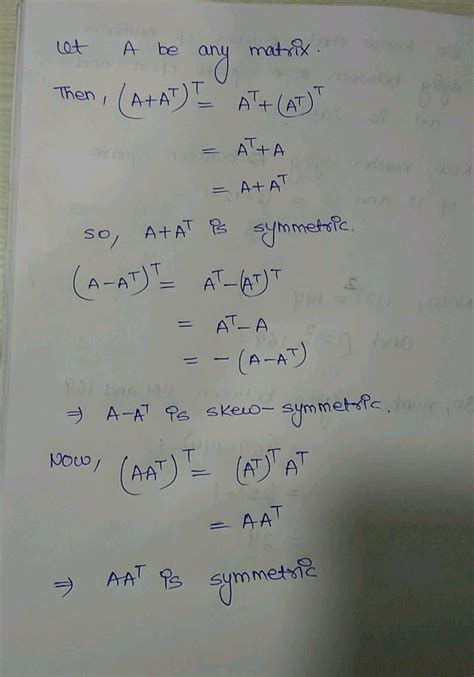 Let A be any matrix.
Then, (A+Aᵀ)ᵀ = Aᵀ+(Aᵀ)ᵀ
= Aᵀ+A
= A+Aᵀ
so, A+Aᵀ is symmetric.
(A-Aᵀ)ᵀ = Aᵀ-(Aᵀ)ᵀ
= Aᵀ-A
= -(A-Aᵀ)
⇒ A-Aᵀ is skew-symmetric.
Now, (AAᵀ)ᵀ = (Aᵀ)ᵀ Aᵀ
= AAᵀ
⇒ AAᵀ is symmetric